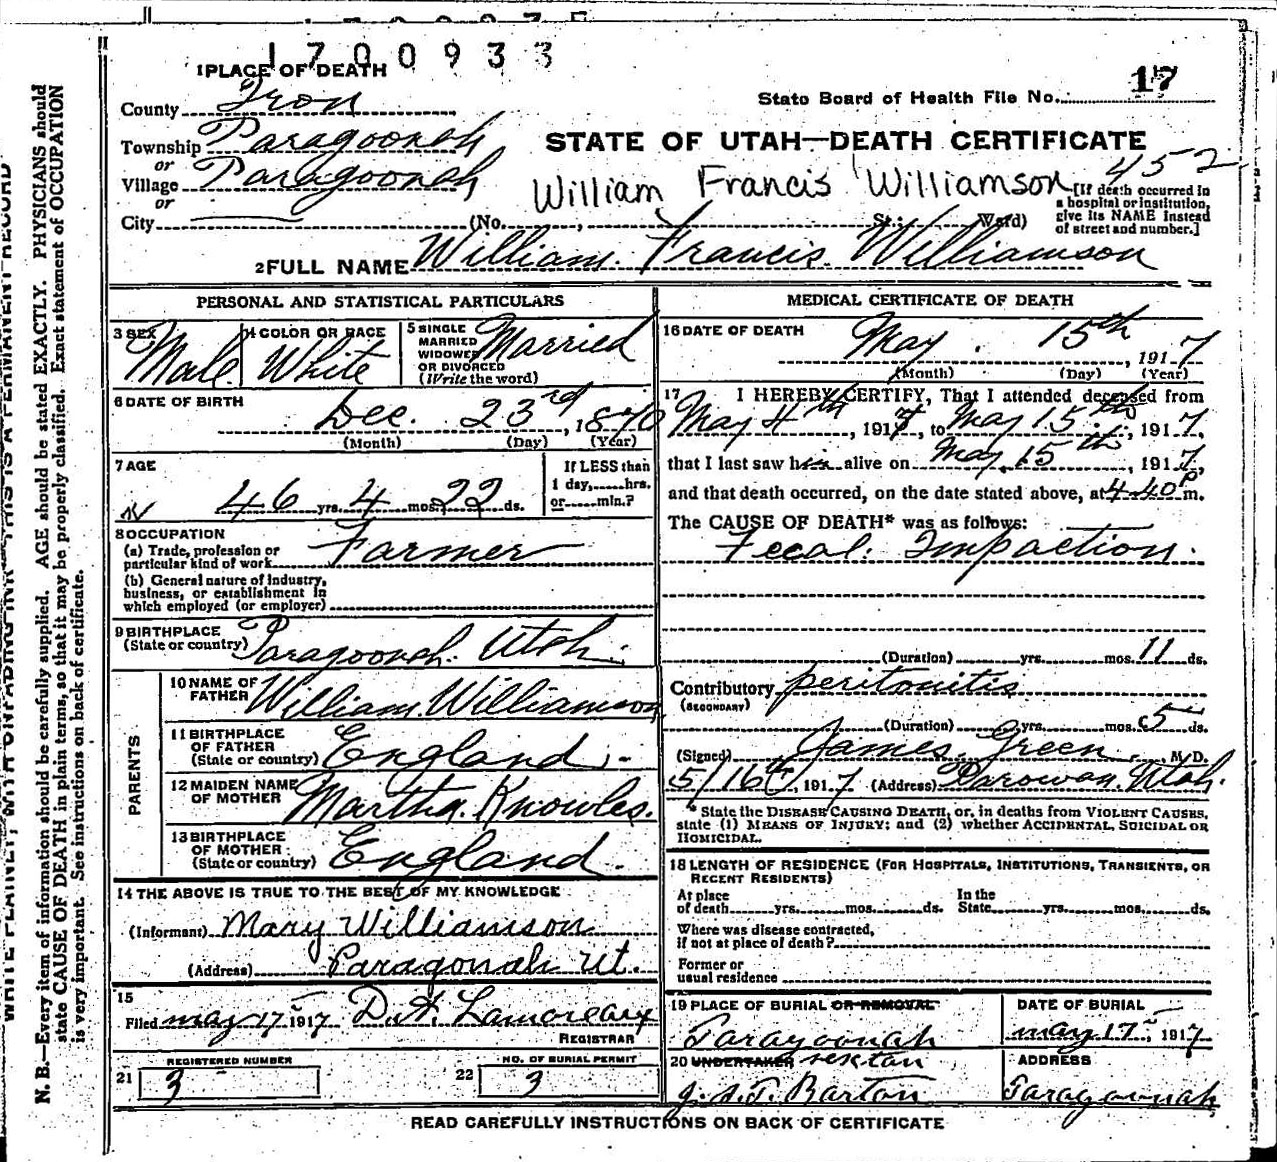 1700933
1 PLACE OF DEATH
County Iron
State Board of Health File No. 17
Township Paragoonah
STATE OF UTAH—DEATH CERTIFICATE
or
Village Paragoonah
William Francis Williamson 452
or
[If death occurred in
a hospital or institution,
give its NAME instead
of street and number.]
City (No. , St.; Ward)
2 FULL NAME William Francis Williamson
PERSONAL AND STATISTICAL PARTICULARS
3 SEX Male
4 COLOR OR RACE White
5 SINGLE
MARRIED
WIDOWED
OR DIVORCED
(Write the word) Married
6 DATE OF BIRTH
Dec. 23rd, 1870
(Month) (Day) (Year)
7 AGE
46 yrs. 4 mos. 22 ds.
If LESS than
1 day, hrs.
or min.?
8 OCCUPATION
(a) Trade, profession or
particular kind of work Farmer
(b) General nature of industry,
business, or establishment in
which employed (or employer)
9 BIRTHPLACE
(State or country) Paragoonah. Utah.
PARENTS
10 NAME OF
FATHER William Williamson
11 BIRTHPLACE
OF FATHER
(State or country) England
12 MAIDEN NAME
OF MOTHER Martha Knowles.
13 BIRTHPLACE
OF MOTHER
(State or country) England.
14 THE ABOVE IS TRUE TO THE BEST OF MY KNOWLEDGE
(Informant) Mary Williamson
(Address) Paragonah Ut.
15
Filed may 17 1917 Lamoreaux
REGISTRAR
REGISTERED NUMBER
21 3
NO. OF BURIAL PERMIT
22 3
MEDICAL CERTIFICATE OF DEATH
16 DATE OF DEATH
May 15th, 1917
(Month) (Day) (Year)
17 I HEREBY CERTIFY, That I attended deceased from
May 4th, 1917, to May 15th, 1917,
that I last saw him alive on May 15th, 1917,
and that death occurred, on the date stated above, at 4-40 P m.
The CAUSE OF DEATH* was as follows:
Fecal Impaction.
(Duration) yrs. mos. 11 ds.
Contributory peritonitis
(SECONDARY)
(Duration) yrs. mos. 5 ds.
(Signed) James Green M.D.
5/16, 1917 (Address) Parowan, Utah.
* State the DISEASE CAUSING DEATH, or, in deaths from VIOLENT CAUSES,
state (1) MEANS OF INJURY; and (2) whether ACCIDENTAL, SUICIDAL OR
HOMICIDAL.
18 LENGTH OF RESIDENCE (FOR HOSPITALS, INSTITUTIONS, TRANSIENTS, OR
RECENT RESIDENTS)
At place
of death yrs. mos. ds.
In the
State yrs. mos. ds.
Where was disease contracted,
if not at place of death?
Former or
usual residence
19 PLACE OF BURIAL OR REMOVAL
Paragoonah
DATE OF BURIAL
may 17, 1917
20 UNDERTAKER sexton
Barton
ADDRESS
Paragoonah
READ CAREFULLY INSTRUCTIONS ON BACK OF CERTIFICATE
N. B.—Every item of information should be carefully supplied. AGE should be stated EXACTLY. PHYSICIANS should
state CAUSE OF DEATH in plain terms, so that it may be properly classified. Exact statement of OCCUPATION
is very important. See instructions on back of certificate.